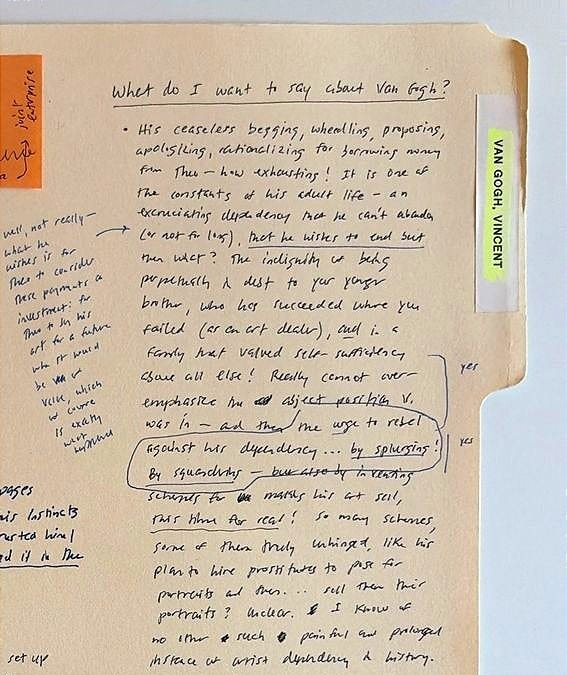 What do I want to say about Van Gogh?
• His ceaseless begging, wheedling, proposing,
apologizing, rationalizing for borrowing money
from Theo — how exhausting! It is one of
the constants of his adult life — an
excruciating dependency that he can't abandon
(or not for long), that he wishes to end but
then what? The indignity of being
perpetually in debt to your younger
brother, who has succeeded where you
failed (as an art dealer), and in a
family that valued self-sufficiency
above all else! Really cannot over-
emphasize the abject position V.
was in — and then the urge to rebel
against his dependency... by splurging!
By squandering — but also by inventing
schemes for making his art sell,
this time for real! So many schemes,
some of them truly unhinged, like his
plan to hire prostitutes to pose for
portraits and then... sell them their
portraits? Unclear. I know of
no other such painful and prolonged
instance of artist dependency in history.
well, not really—
what he
wishes is for
Theo to consider
these payments a
investment: for
Theo to buy his
art for a future
when it would
be of
value, which
of course
is exactly
what
happened
yes
yes
VAN GOGH, VINCENT
joint
enterprise
pages
his instincts
trusted him/
d it in the
set up